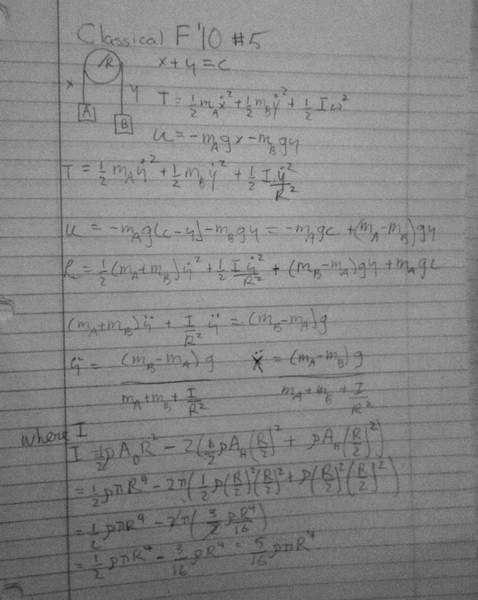 Classical F'10 #5
R
x + y = c
x
y
A
B
T = 1/2 m_A ẋ² + 1/2 m_B ẏ² + 1/2 I ω²
U = -m_A g x - m_B g y
T = 1/2 m_A ẏ² + 1/2 m_B ẏ² + 1/2 I ẏ²/R²
U = -m_A g(c-y) - m_B g y = -m_A g c + (m_A - m_B) g y
L = 1/2 (m_A + m_B) ẏ² + 1/2 I ẏ²/R² + (m_B - m_A) g y + m_A g c
(m_A + m_B) ÿ + I/R² ÿ = (m_B - m_A) g
ÿ = (m_B - m_A) g / (m_A + m_B + I/R²)    ẍ = (m_A - m_B) g / (m_A + m_B + I/R²)
where I
I = 1/2 ρ A_0 R² - 2(1/2 ρ A_H (R/2)² + ρ A_H (R/2)²)
= 1/2 ρπR⁴ - 2π(1/2 ρ(R/2)²(R/2)² + ρ(R/2)²(R/2)²)
= 1/2 ρπR⁴ - 2π(3/2 ρR⁴/16)
= 1/2 ρπR⁴ - 3/16 ρR⁴ = 5/16 ρπR⁴